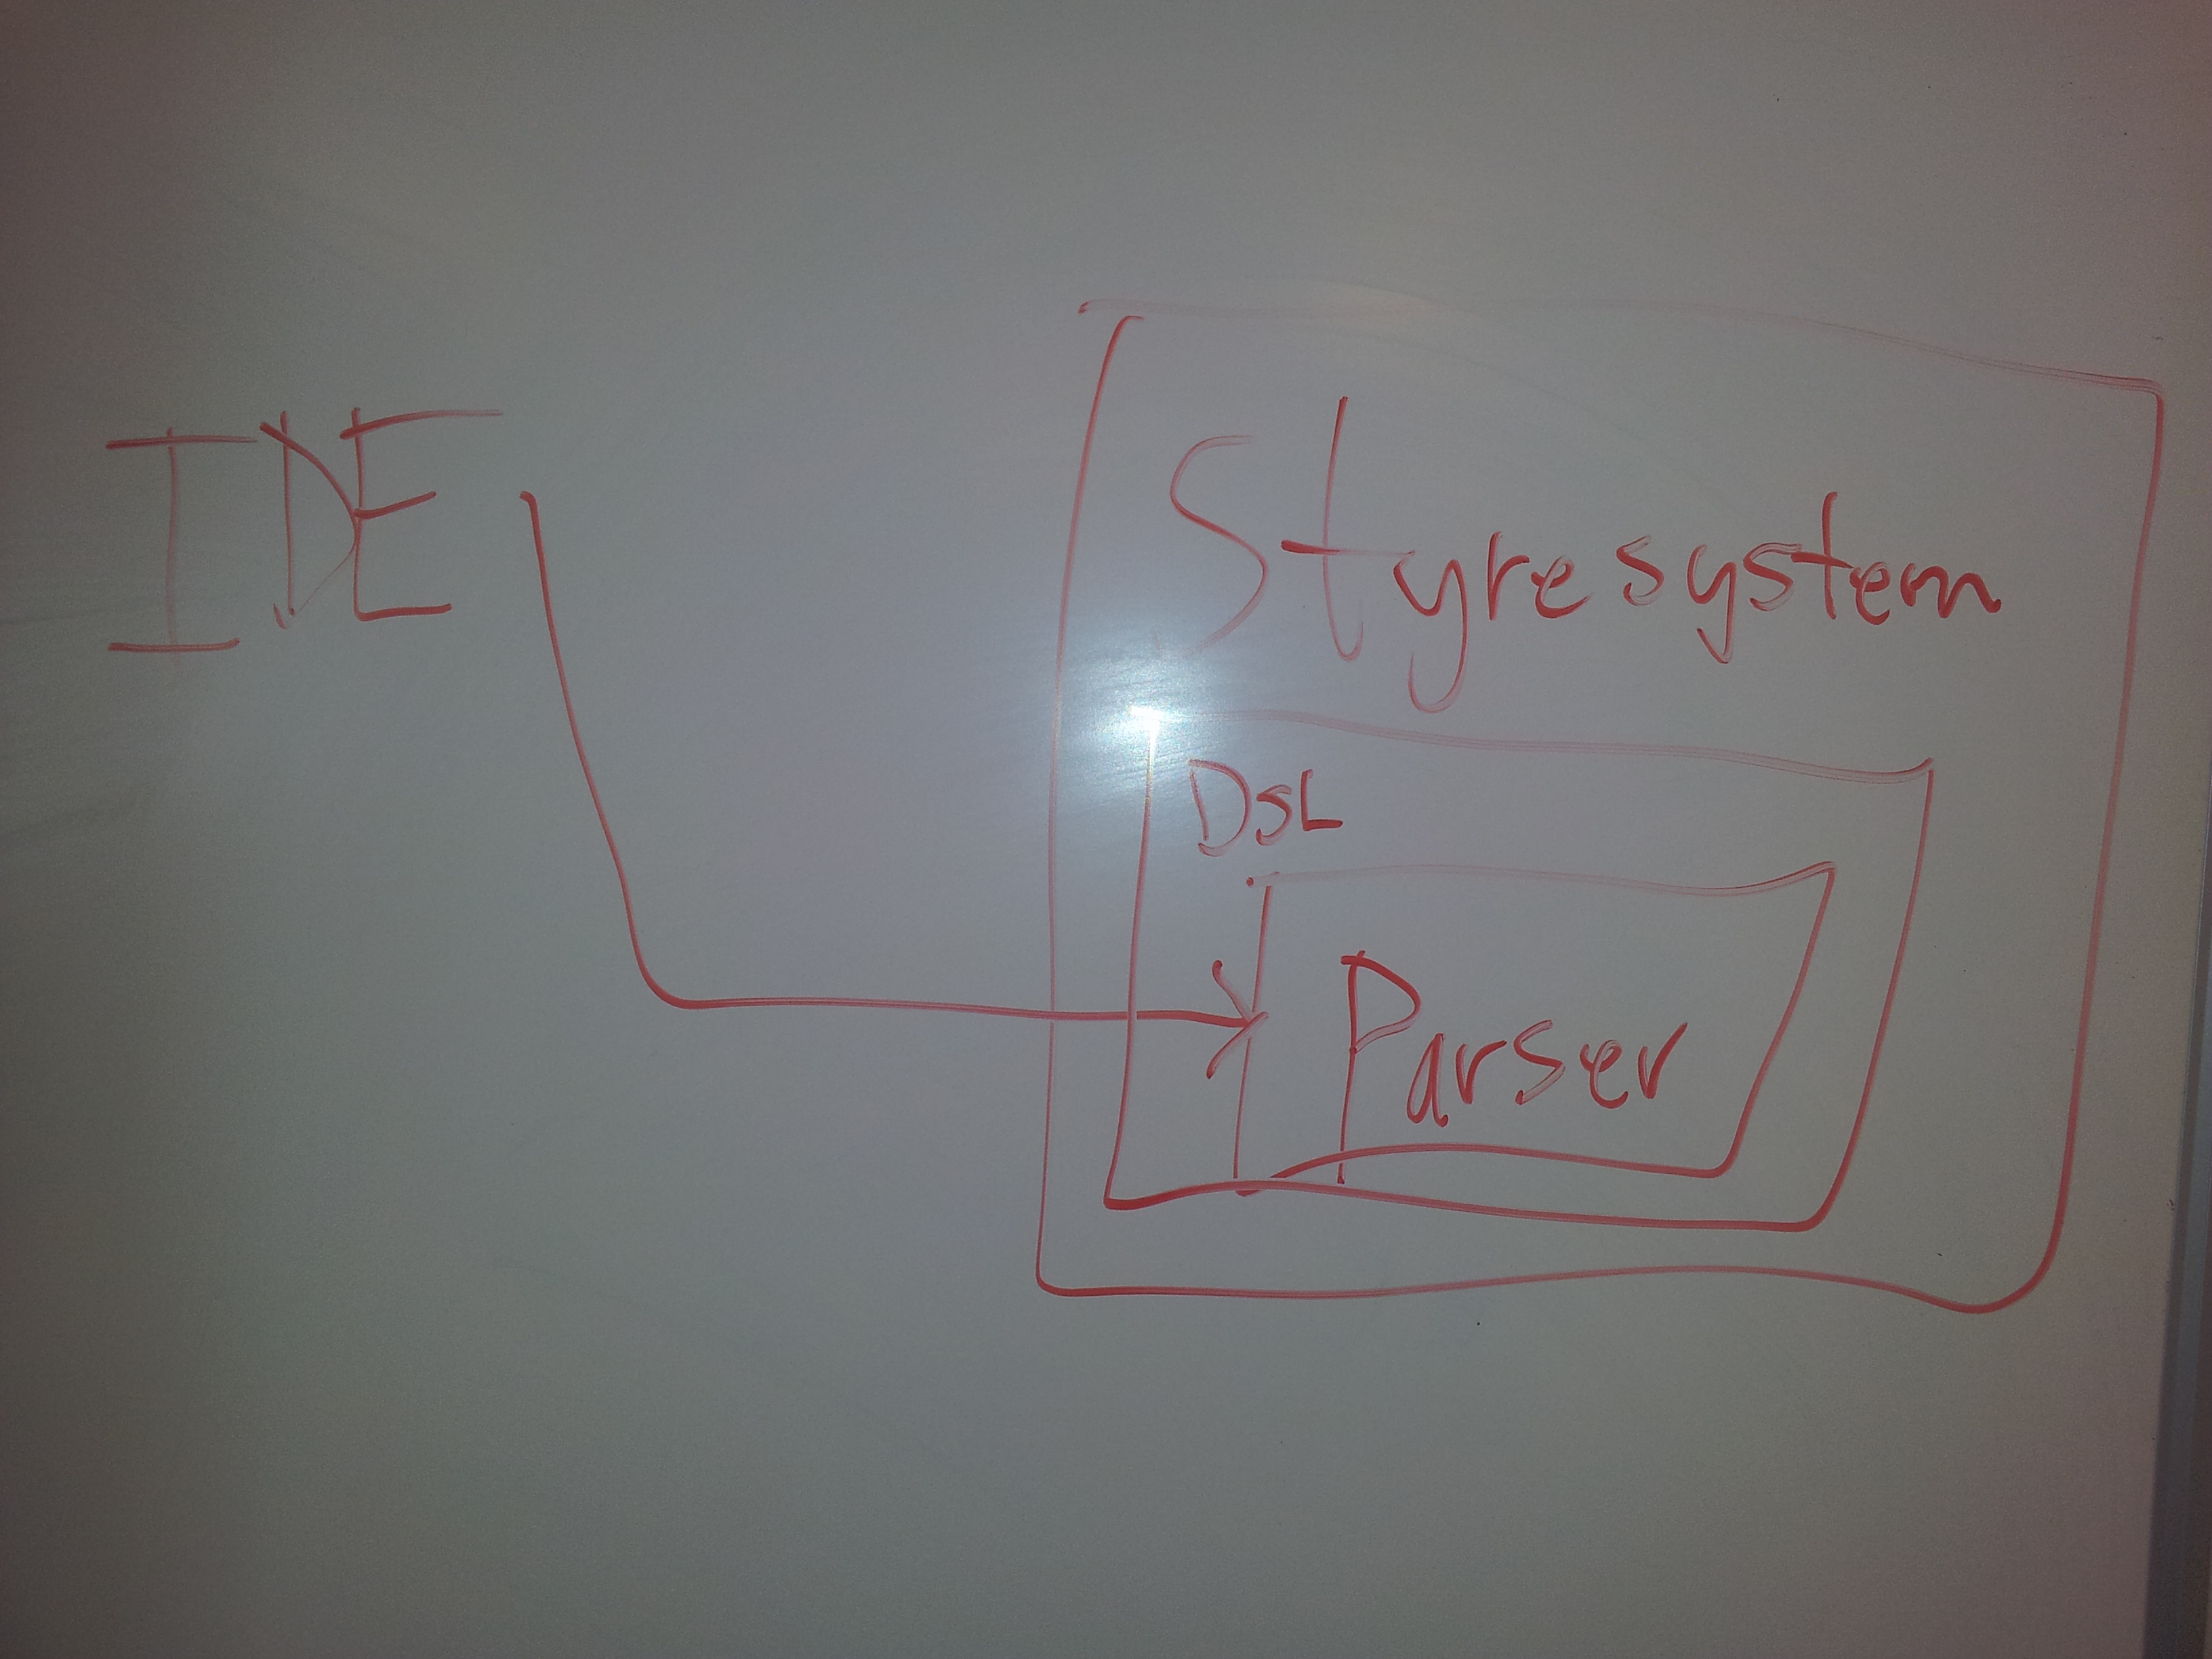 IDE
Styresystem
DSL
Parser